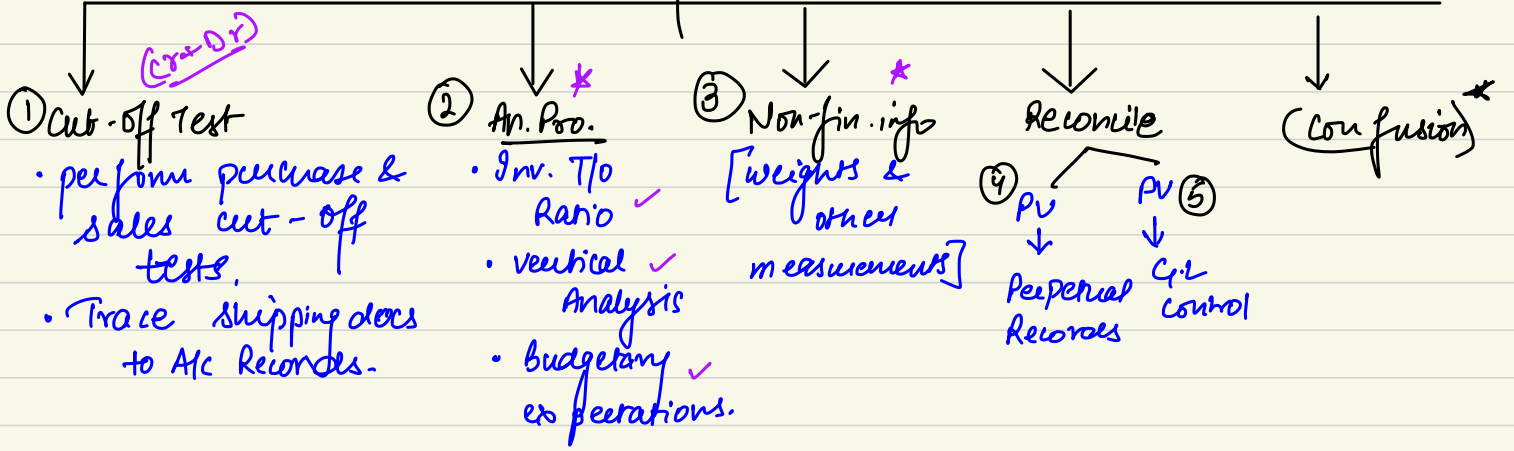 (Cr → Dr)
① Cut-off Test
• perform purchase &
sales cut-off
tests.
• Trace shipping docs
to A/c Records.
② An. Pro. *
• Inv. T/o
Ratio ✓
• vertical ✓
Analysis
• Budgetary ✓
expectations.
③ Non-fin. info *
[weights &
other
measurements]
Reconcile
④ PV
↓
Perpetual
Records
PV ⑤
↓
G.L
Control
(Confusion) *